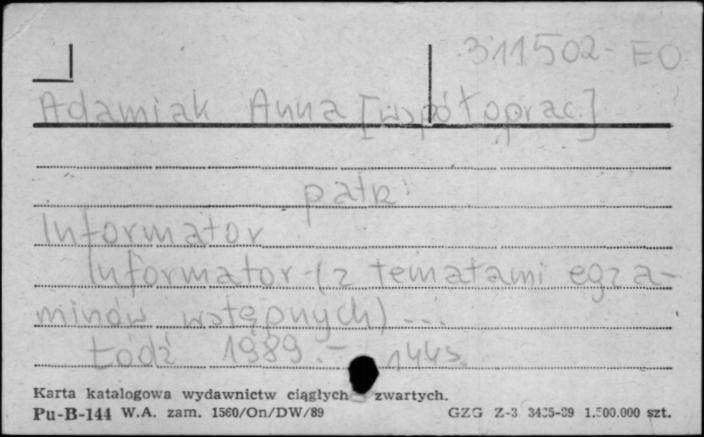 311502-EO
Adamiak Anna [współoprac.]
patrz:
Informator
Informator (z tematami egza-
minów wstępnych) ...
Łódź 1989.- 144s.
Karta katalogowa wydawnictw ciągłych zwartych.
Pu-B-144 W.A. zam. 1560/On/DW/89 GZG Z-3 1.500.000 szt.